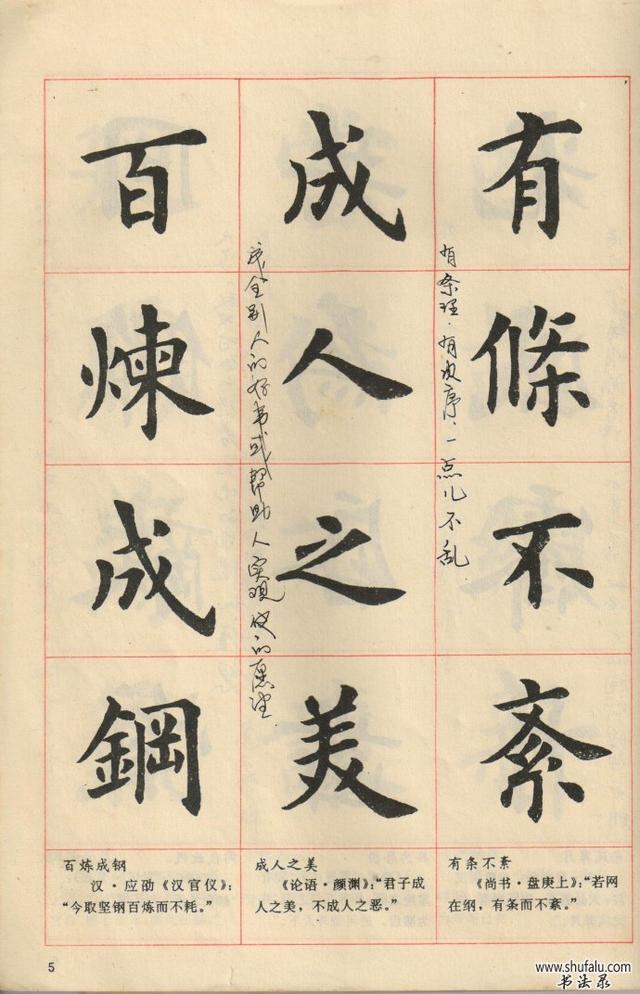 有條不紊
有条理·有次序·一点儿不乱
成人之美
成全别人的好事或帮助人实现他的愿望
百煉成鋼
有条不紊
《尚书·盘庚上》：“若网
在纲，有条而不紊。”
成人之美
《论语·颜渊》：“君子成
人之美，不成人之恶。”
百炼成钢
汉·应劭《汉官仪》：
“今取坚钢百炼而不耗。”
5
www.shufalu.com
书法录